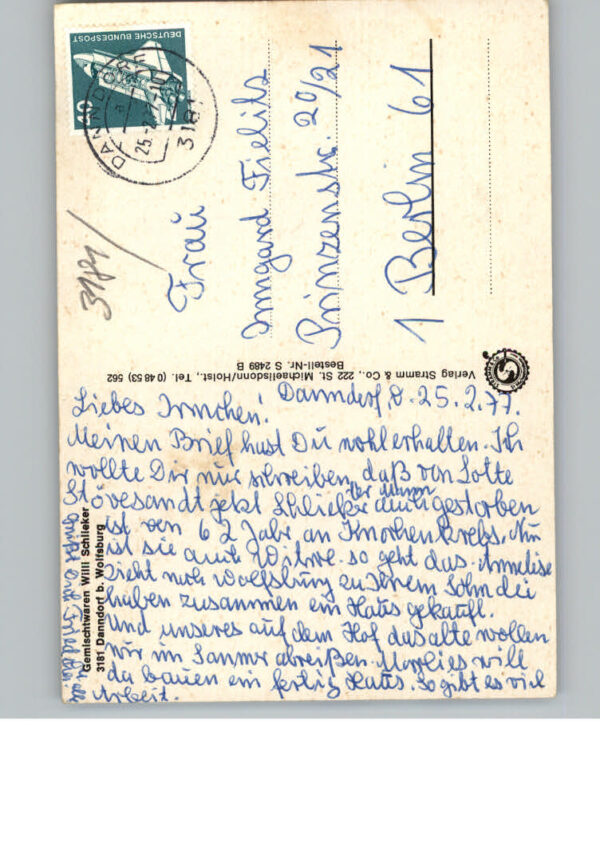 DEUTSCHE BUNDESPOST
40
DANNDORF
25.-2.77
3181
3181
Frau
Irmgard Fielitz
Prinzenstr. 20/21
1 Berlin 61
Verlag Stramm & Co., 222 St. Michaelisdonn/Holst., Tel. (0 48 53) 562
Bestell-Nr. S 2489 B
Danndorf d. 25.2.77.
Liebes Irmchen!
Meinen Brief hast Du wohl erhalten. Ich
wollte Dir nur schreiben, daß von Lotte
Stövesandt jetzt Schlieker der Mann auch gestorben
ist von 62 Jahr, an Knochenkrebs. Nun
ist sie auch Witwe. so geht das. Anneliese
zieht nach Wolfsburg zu Ihrem Sohn die
haben zusammen ein Haus gekauft.
Und unseres auf dem Hof das alte wollen
wir im Sommer abreißen. Marlies will
da bauen ein fertig Haus. So gibt es viel
Arbeit.
Gemischtwaren Willi Schlieker
3181 Danndorf b. Wolfsburg